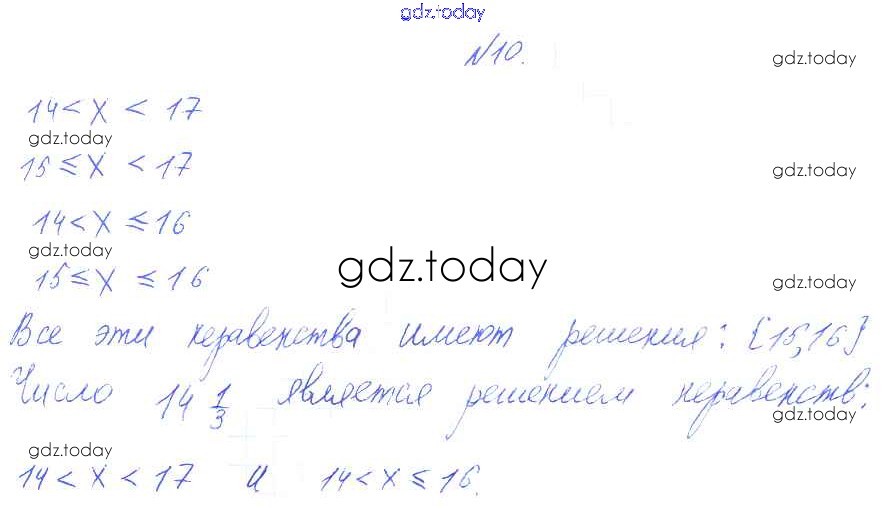 gdz.today
№10.
gdz.today
14 < x < 17
gdz.today
15 ≤ x < 17
gdz.today
14 < x ≤ 16
gdz.today
gdz.today
15 ≤ x ≤ 16
gdz.today
Все эти неравенства имеют решения: {15,16}
Число 14 1/3 является решением неравенств:
gdz.today
gdz.today
14 < x < 17 и 14 < x ≤ 16.